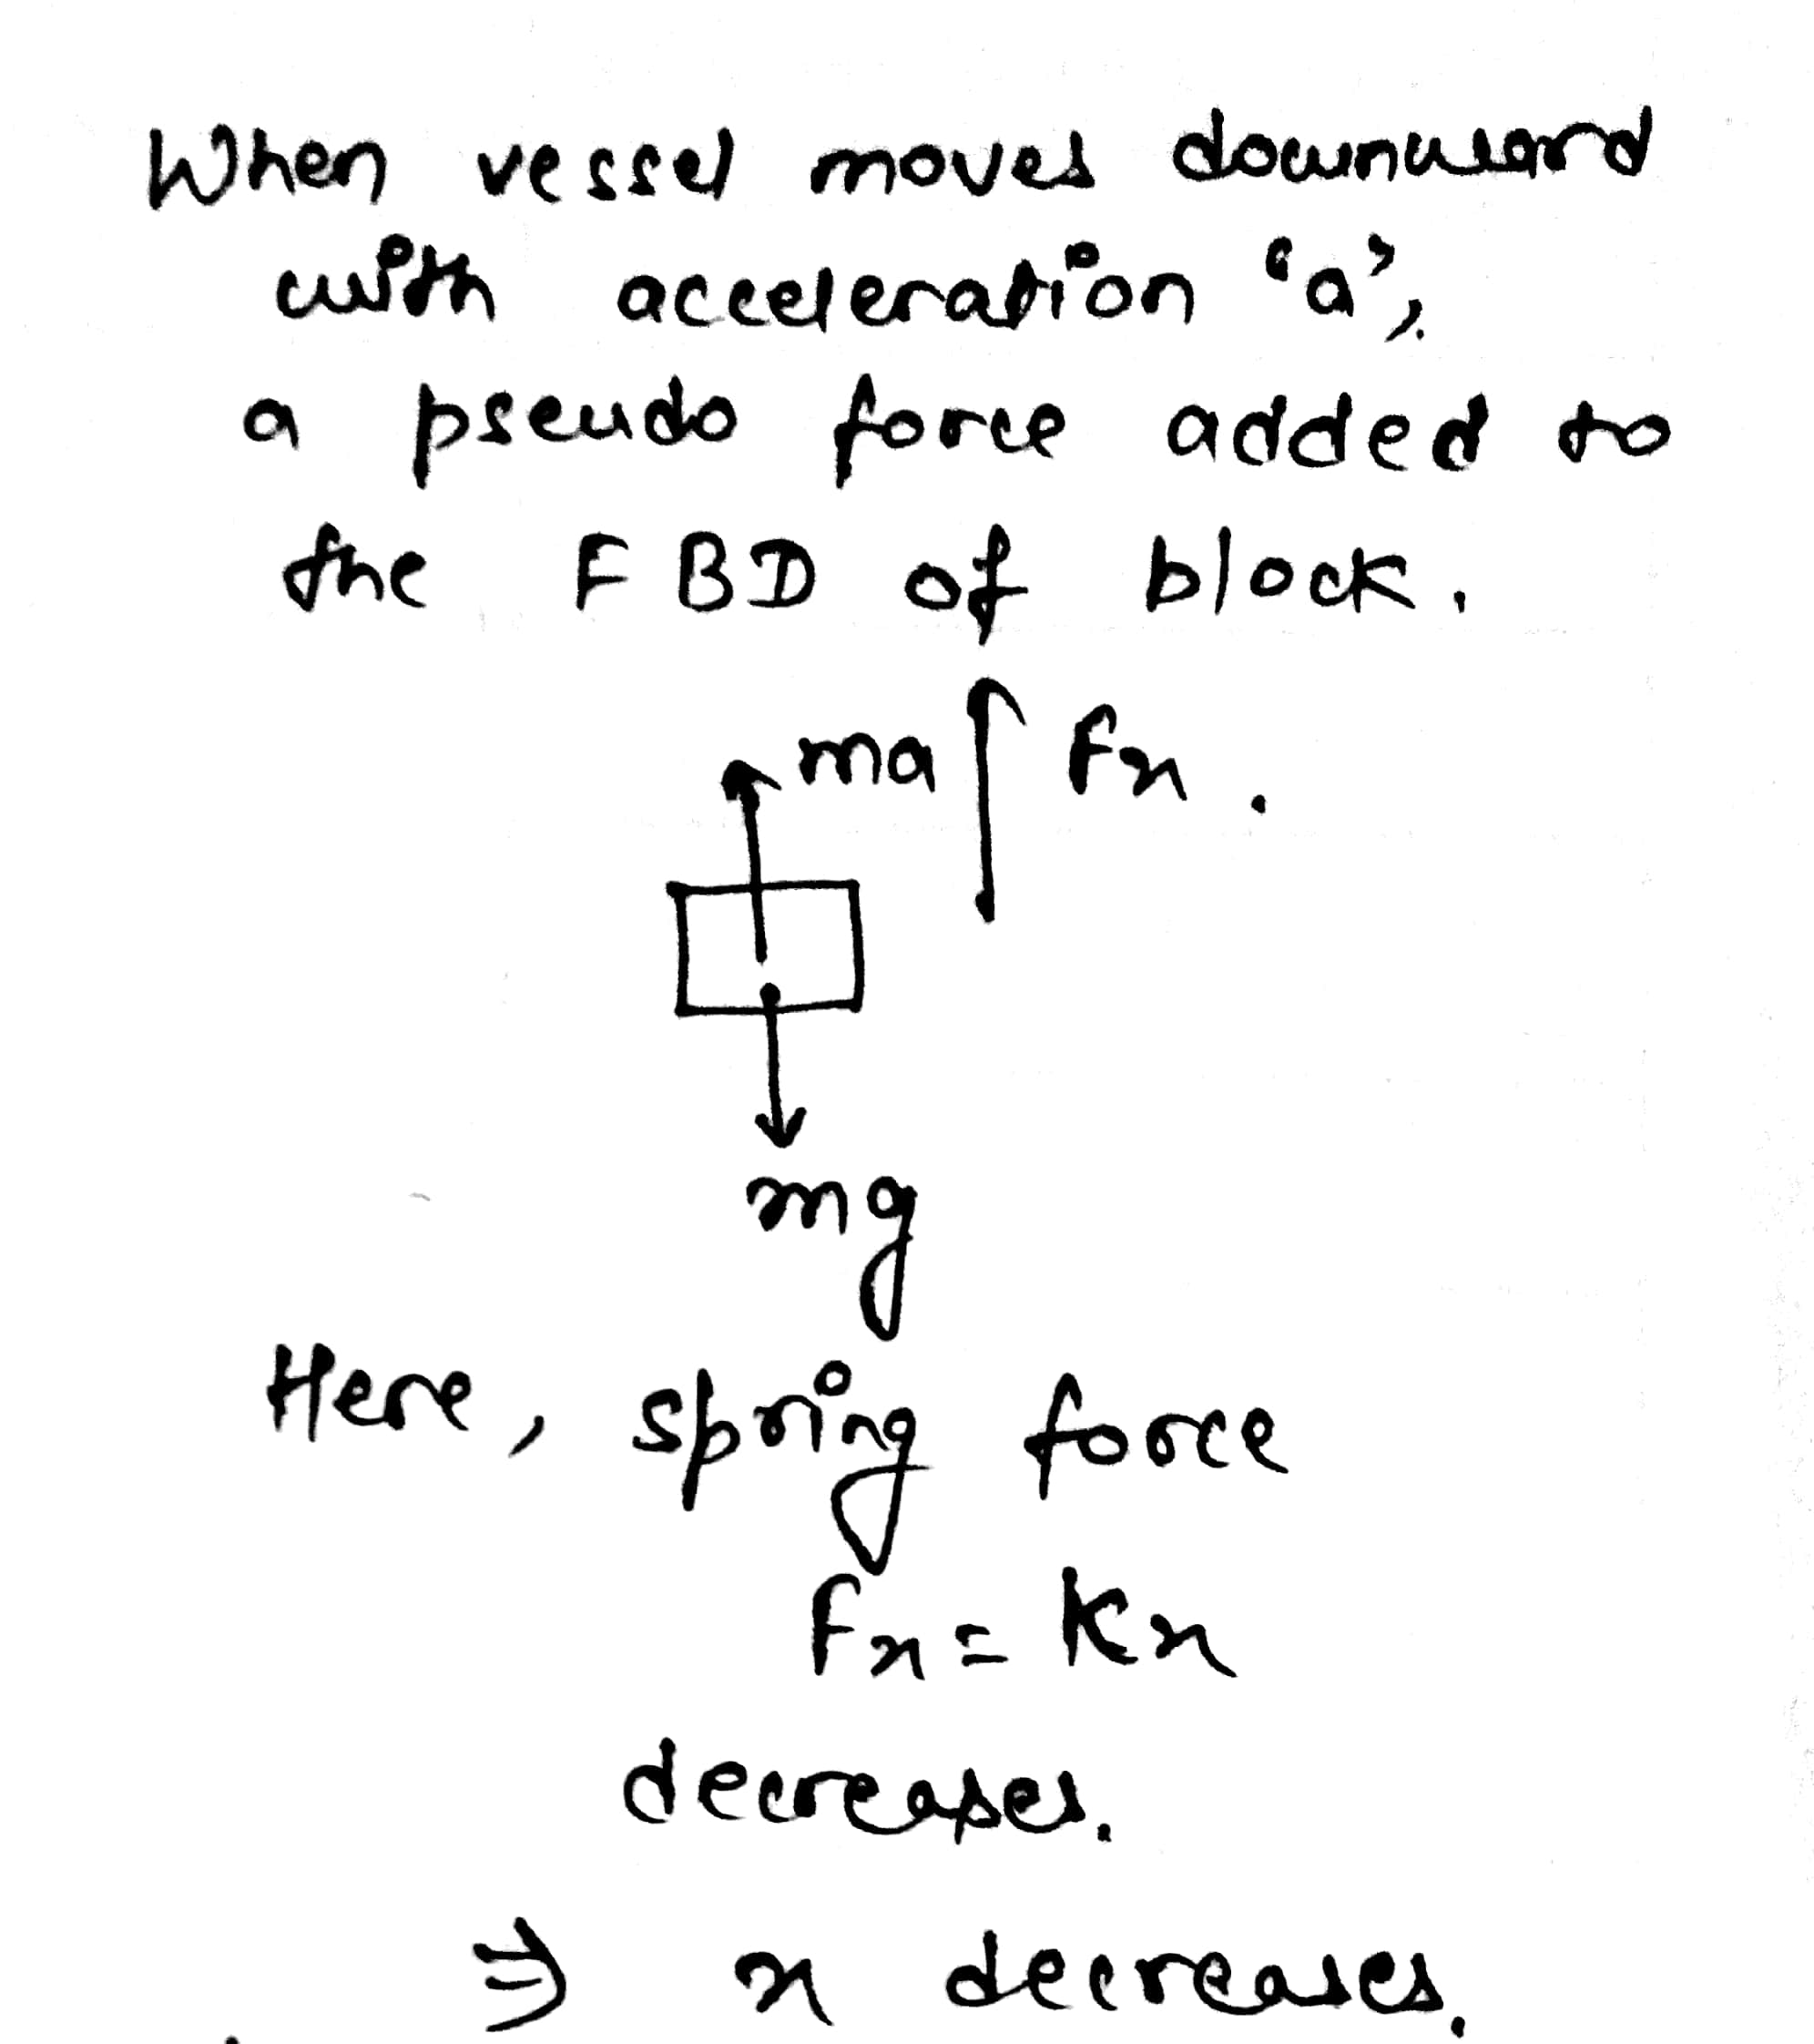 When vessel moves downward
with acceleration 'a',
a pseudo force added to
the FBD of block.
ma Fx.
mg
Here, spring force
Fx = Kx
decreases.
⇒ x decreases.